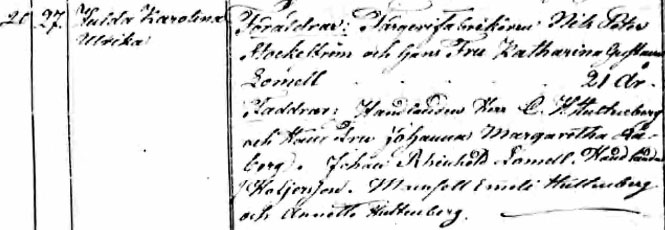 20 27. Hulda Karolina Föräldrar: Färgerifabrikören Nils Peter
Ulrika Stockström och hans Fru Katharina Gustava
Lomell . . . . . . 21 år.
Faddrar: Handlanden Herr C. Huttenberg
och Hans Fru Johanna Margaretha
berg. Johan Rheinhold Lomell. Handlanden
Mamsell Emeli Huttenberg
och Annette Huttenberg.